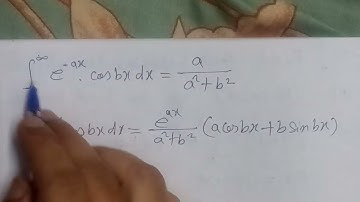 ∫^∞ e^{-ax} · cosbx dx = a / (a² + b²)
cosbx dx = e^{ax} / (a² + b²) (a cosbx + b sinbx)